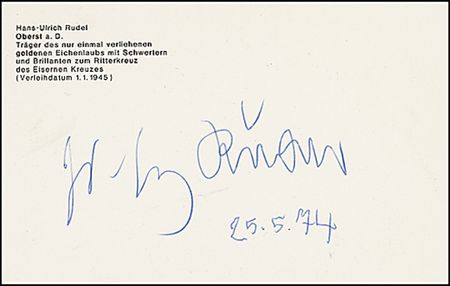 Hans-Ulrich Rudel
Oberst a. D.
Träger des nur einmal verliehenen
goldenen Eichenlaubs mit Schwertern
und Brillanten zum Ritterkreuz
des Eisernen Kreuzes
(Verleihdatum 1.1.1945)
25.5.74